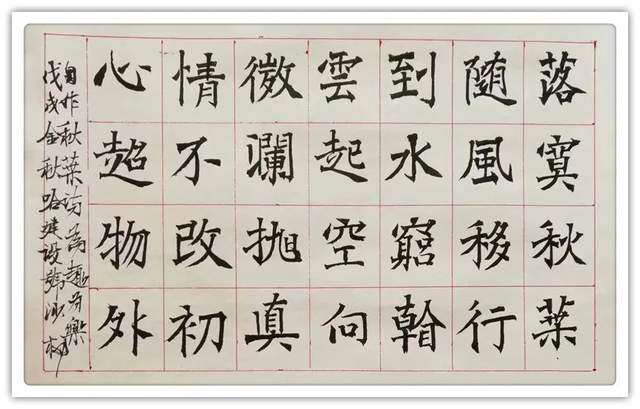 落寞秋葉
随風移行
到水窮
雲起空向
微瀾抛真
情不改初
心超物外
自作秋葉詩為趣為樂
戊戌金秋哈建設